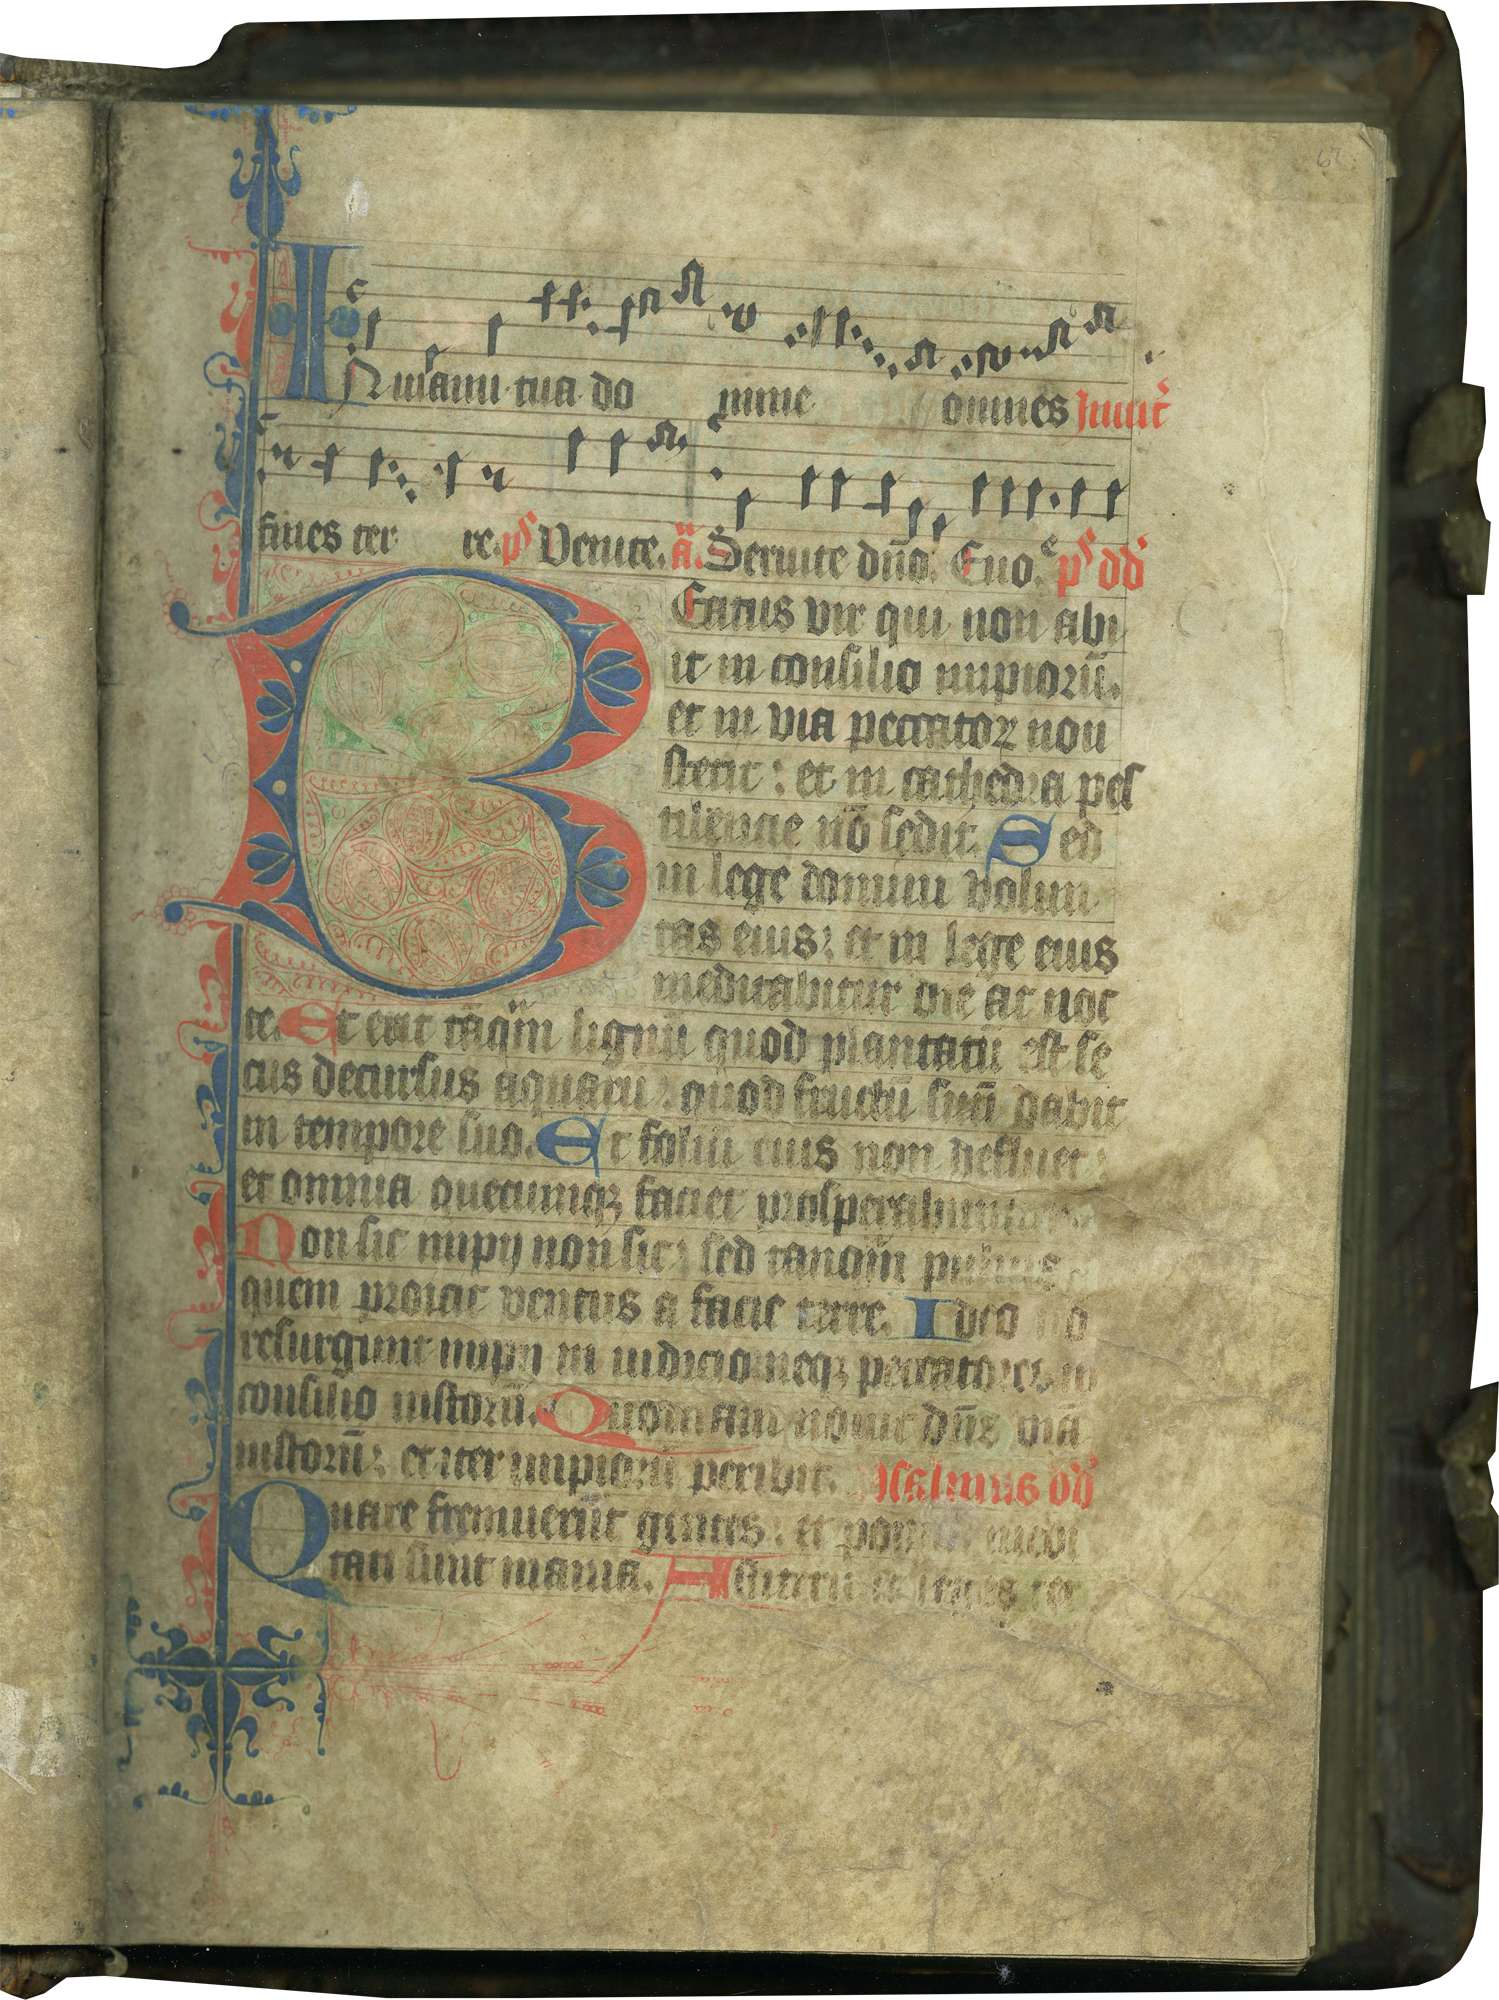 62
IN manu tua do mine omnes Inuit̄
fines ter re. p̄s Venite. a̅. Seruite dn̄o. Euo e p̄s dd̄
BEatus vir qui non abi
it in consilio impiorū.
et in via peccatoꝝ non
stetit : et in cathedra pes
tilencie nō sedit. Sed
in lege domini volun
tas eius : et in lege eius
meditabitur die ac noc
te. Et erit tāqm̄ lignū quod plantatū est se
cus decursus aquarū : quod fructū suū dabit
in tempore suo. Et foliū eius non defluet :
et omnia quecumqꝫ faciet prosperabuntur
Non sic impij non sic : sed tanqm̄ puluis
quem proicit ventus a facie terre. Ideo nō
resurgunt impij in iudicio neqꝫ peccatores in
consilio iustorū. Quoniam nouit dn̄s viā
iustorū : et iter impiorū peribit. Psalmus dd̄
Quare fremuerūt gentes : et populi medi
tati sunt inania. Astiterunt reges ter